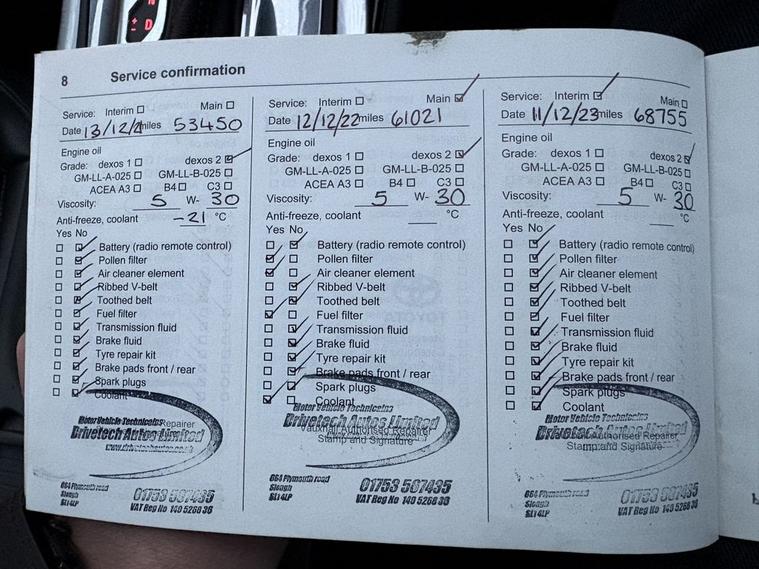 8 Service confirmation
Service: Interim Main
Date 13/12/21 miles 53450
Engine oil
Grade: dexos 1 dexos 2
GM-LL-A-025 GM-LL-B-025
ACEA A3 B4 C3
Viscosity: 5 W- 30
Anti-freeze, coolant -21 °C
Yes No
Battery (radio remote control)
Pollen filter
Air cleaner element
Ribbed V-belt
Toothed belt
Fuel filter
Transmission fluid
Brake fluid
Tyre repair kit
Brake pads front / rear
Spark plugs
Coolant
Motor Vehicle Technicains
Repairer
Drivetech Autos Limited
664 Plymouth road
Slough
SL1 4LP
01753 567435
VAT Reg No 140 5268 36
Service: Interim Main
Date 12/12/22 miles 61021
Engine oil
Grade: dexos 1 dexos 2
GM-LL-A-025 GM-LL-B-025
ACEA A3 B4 C3
Viscosity: 5 W- 30
Anti-freeze, coolant °C
Yes No
Battery (radio remote control)
Pollen filter
Air cleaner element
Ribbed V-belt
Toothed belt
Fuel filter
Transmission fluid
Brake fluid
Tyre repair kit
Brake pads front / rear
Spark plugs
Coolant
Motor Vehicle Technicains
Drivetech Autos Limited
Vauxhall Authorised Repairer
Stamp and Signature
664 Plymouth road
Slough
SL1 4LP
01753 567435
VAT Reg No 140 5268 36
Service: Interim Main
Date 11/12/23 miles 68755
Engine oil
Grade: dexos 1 dexos 2
GM-LL-A-025 GM-LL-B-025
ACEA A3 B4 C3
Viscosity: 5 W- 30
Anti-freeze, coolant °C
Yes No
Battery (radio remote control)
Pollen filter
Air cleaner element
Ribbed V-belt
Toothed belt
Fuel filter
Transmission fluid
Brake fluid
Tyre repair kit
Brake pads front / rear
Spark plugs
Coolant
Motor Vehicle Technicains
Drivetech Autos Limited
Authorised Repairer
Stamp and Signature
664 Plymouth road
Slough
SL1 4LP
01753 567435
VAT Reg No 140 5268 36